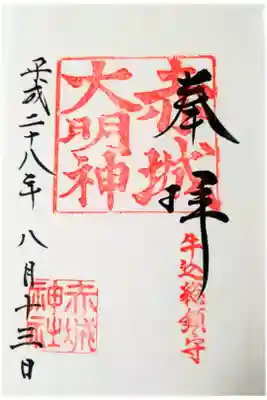 奉拝
赤城
大明神
牛込総鎮守
赤城
神社
平成二十八年 八月十三日